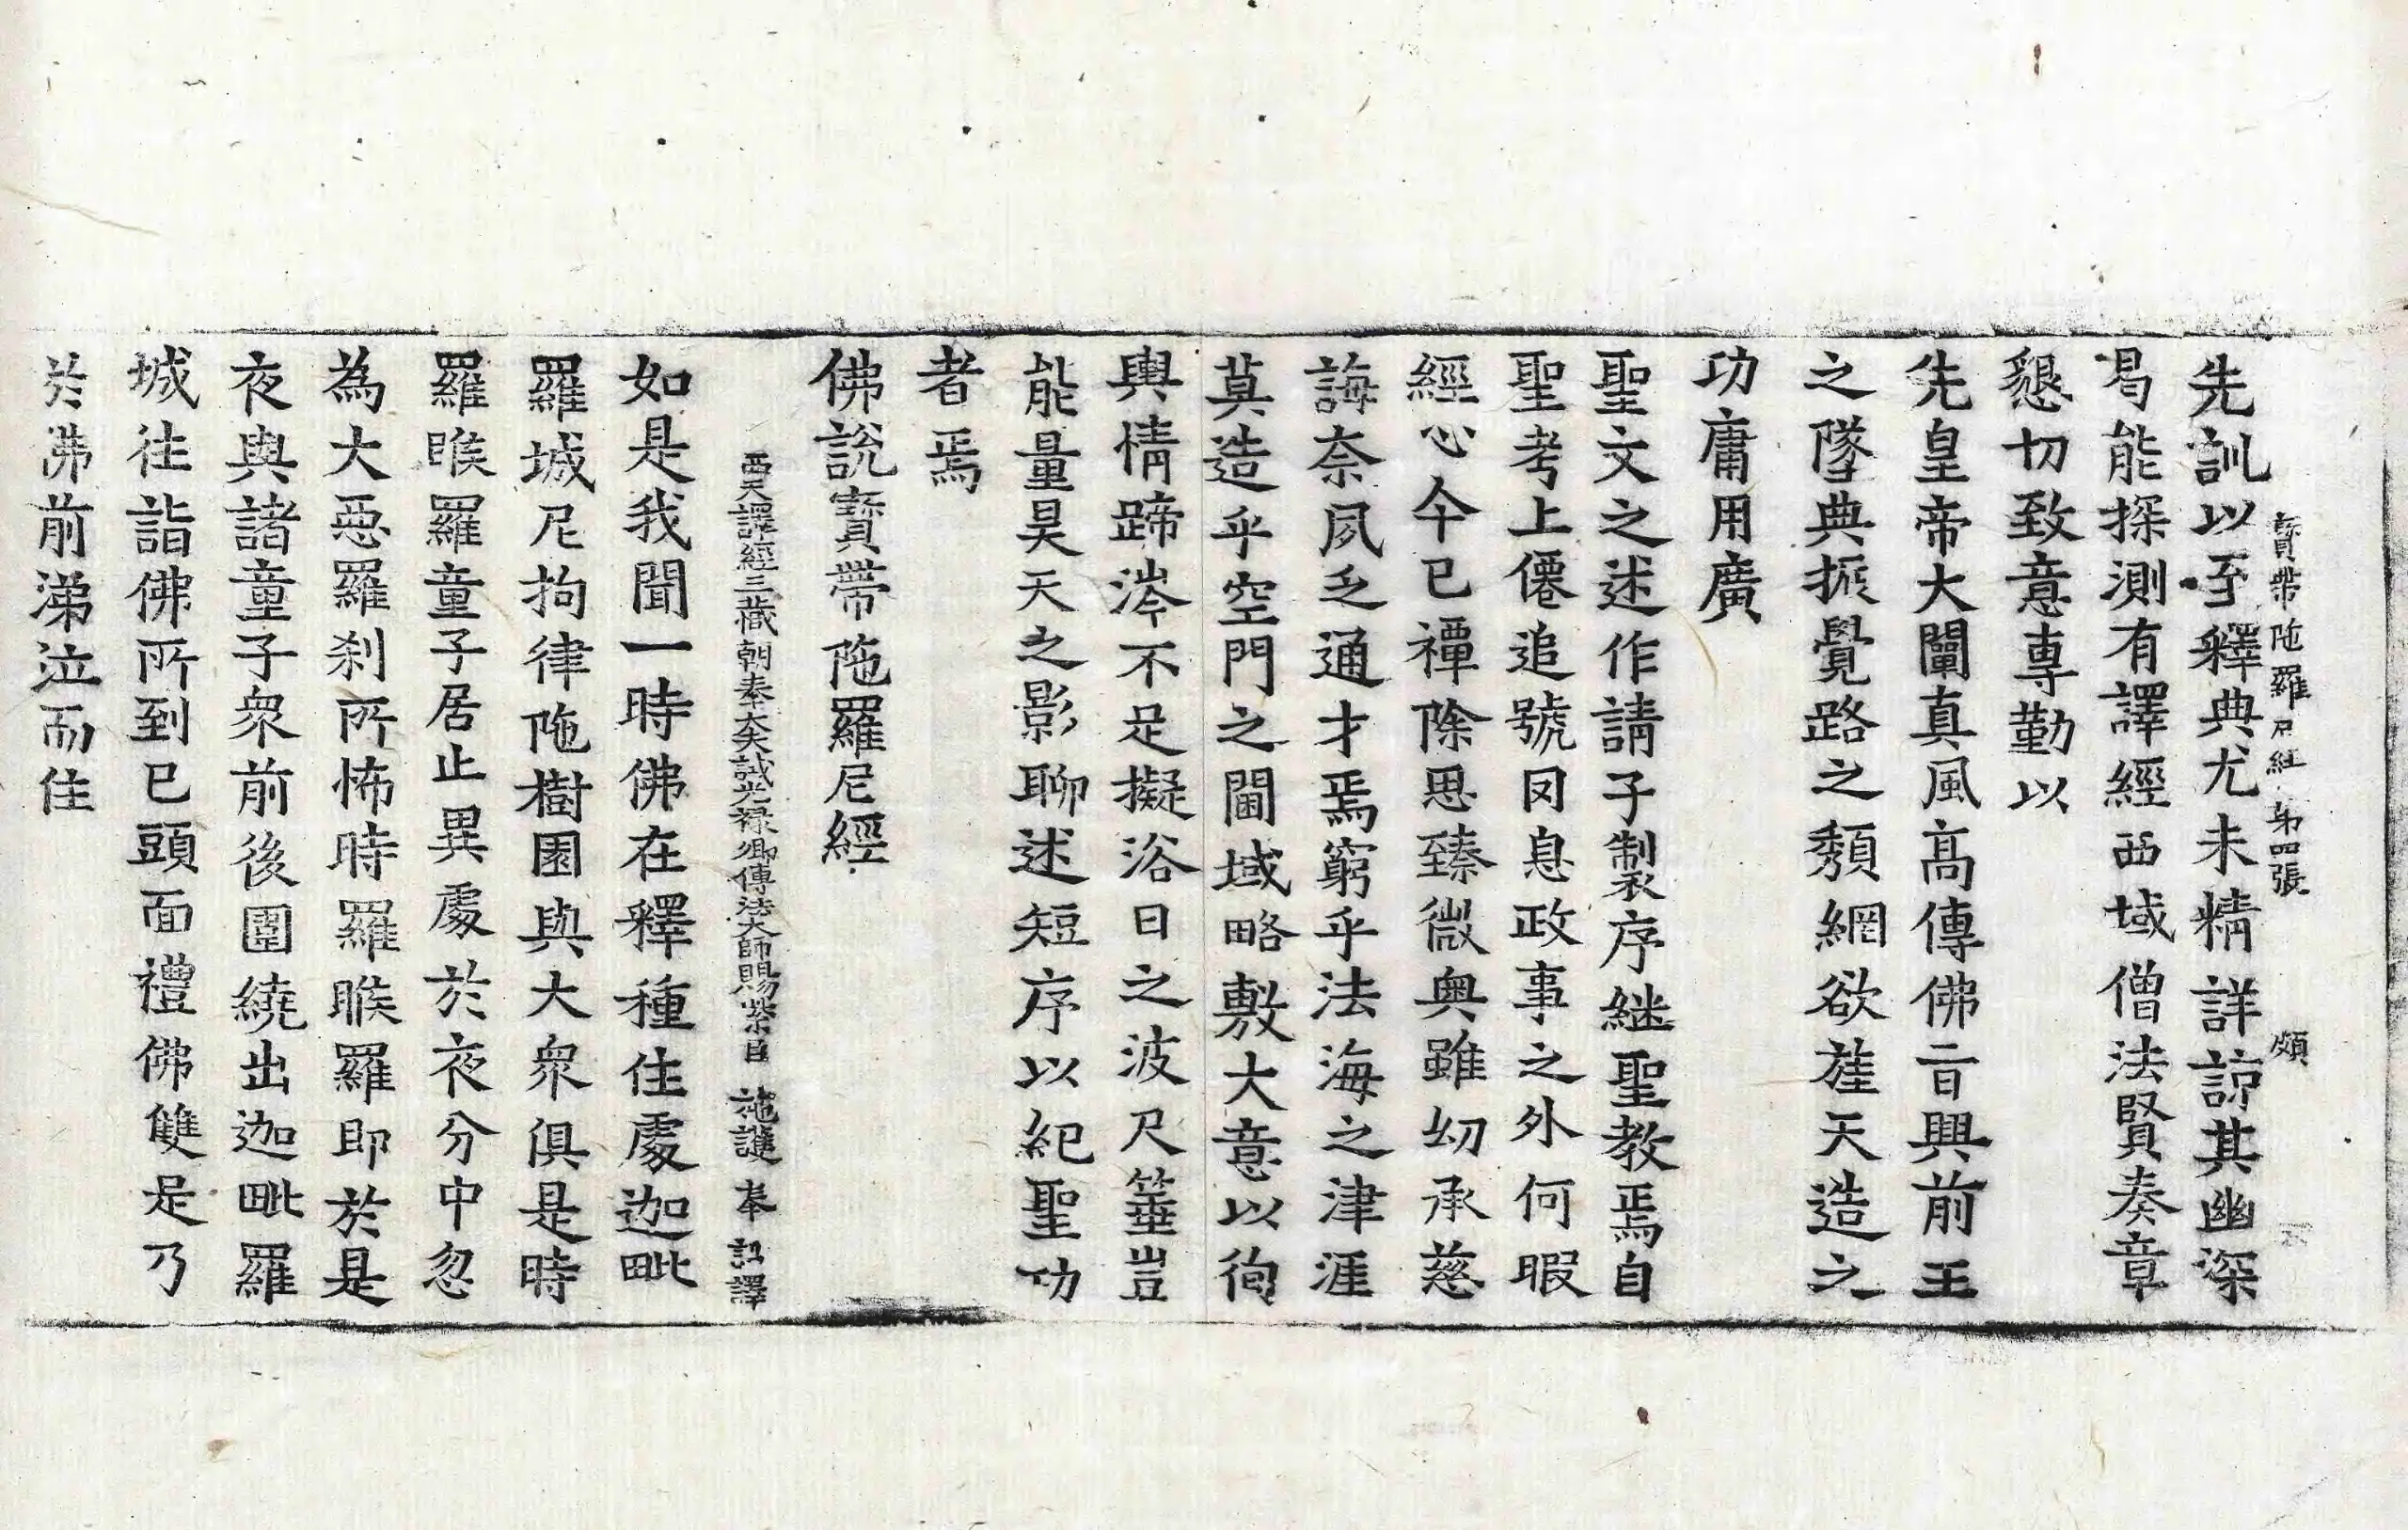 寶帶陁羅尼經 第四張 頗
先訓以至釋典尤未精詳諒其幽深
曷能探測有譯經西域僧法賢奏章
懇切致意專勤以
先皇帝大闡真風高傳佛旨興前王
之墜典振覺路之頹綱欲旌天造之
功庸用廣
聖文之述作請予製序継聖教焉自
聖考上僊追號罔息政事之外何暇
經心今已禫除思臻微奥雖切承慈
誨奈夙乏通才焉窮乎法海之津涯
莫造乎空門之閫域略敷大意以徇
輿情蹄涔不足擬浴日之波尺箠豈
能量昊天之影聊述短序以紀聖功
者焉
佛說寶帶陁羅尼經
西天譯經三藏朝奉大夫試光祿卿傳法大師賜紫臣 施護 奉 詔譯
如是我聞一時佛在釋種住處迦毗
羅城尼拘律陁樹園與大衆俱是時
羅睺羅童子居止異處於夜分中忽
為大惡羅刹所怖時羅睺羅即於是
夜與諸童子衆前後圍繞出迦毗羅
城往詣佛所到已頭面禮佛雙足乃
於佛前涕泣而住